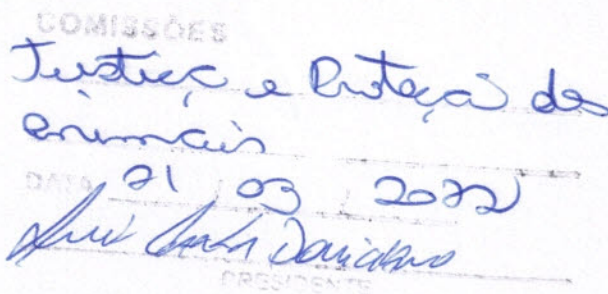 COMISSÕES
Justiça e Proteção dos
animais
DATA 21 03 2022
PRESIDENTE